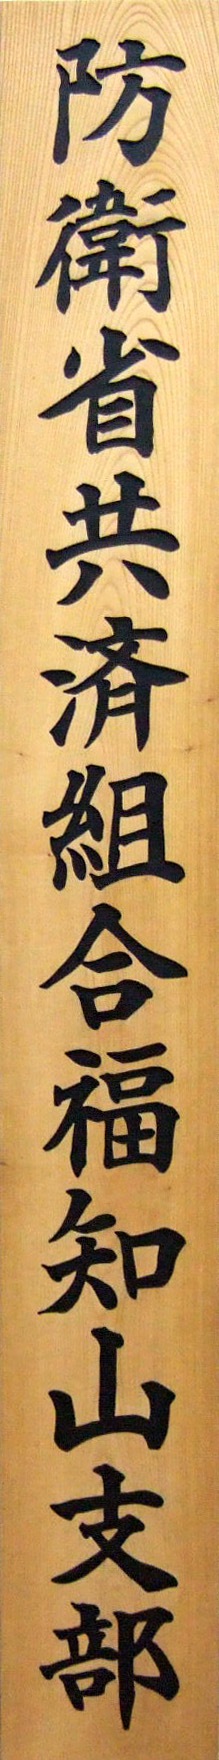 防衛省共済組合福知山支部